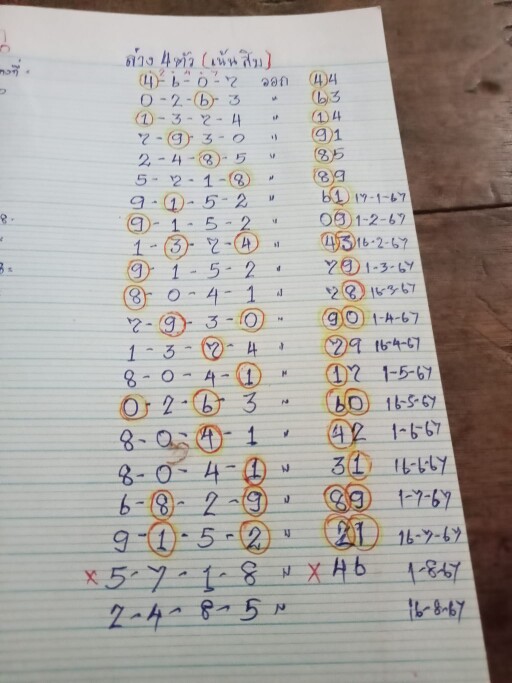 ล่าง 4 ตัว (เน้นสิบ)
4-6-0-7 ออก 44
0-2-6-3 " 63
1-3-7-4 " 14
7-9-3-0 " 91
2-4-8-5 " 85
5-7-1-8 " 89
9-1-5-2 " 61 17-1-67
9-1-5-2 " 09 1-2-67
1-3-7-4 " 43 16-2-67
9-1-5-2 " 79 1-3-67
8-0-4-1 " 78 16-3-67
7-9-3-0 " 90 1-4-67
1-3-7-4 " 79 16-4-67
8-0-4-1 " 17 1-5-67
0-2-6-3 " 60 16-5-67
8-0-4-1 " 42 1-6-67
8-0-4-1 " 31 16-6-67
6-8-2-9 " 89 1-7-67
9-1-5-2 " 21 16-7-67
x 5-7-1-8 " x 46 1-8-67
2-4-8-5 " 16-8-67